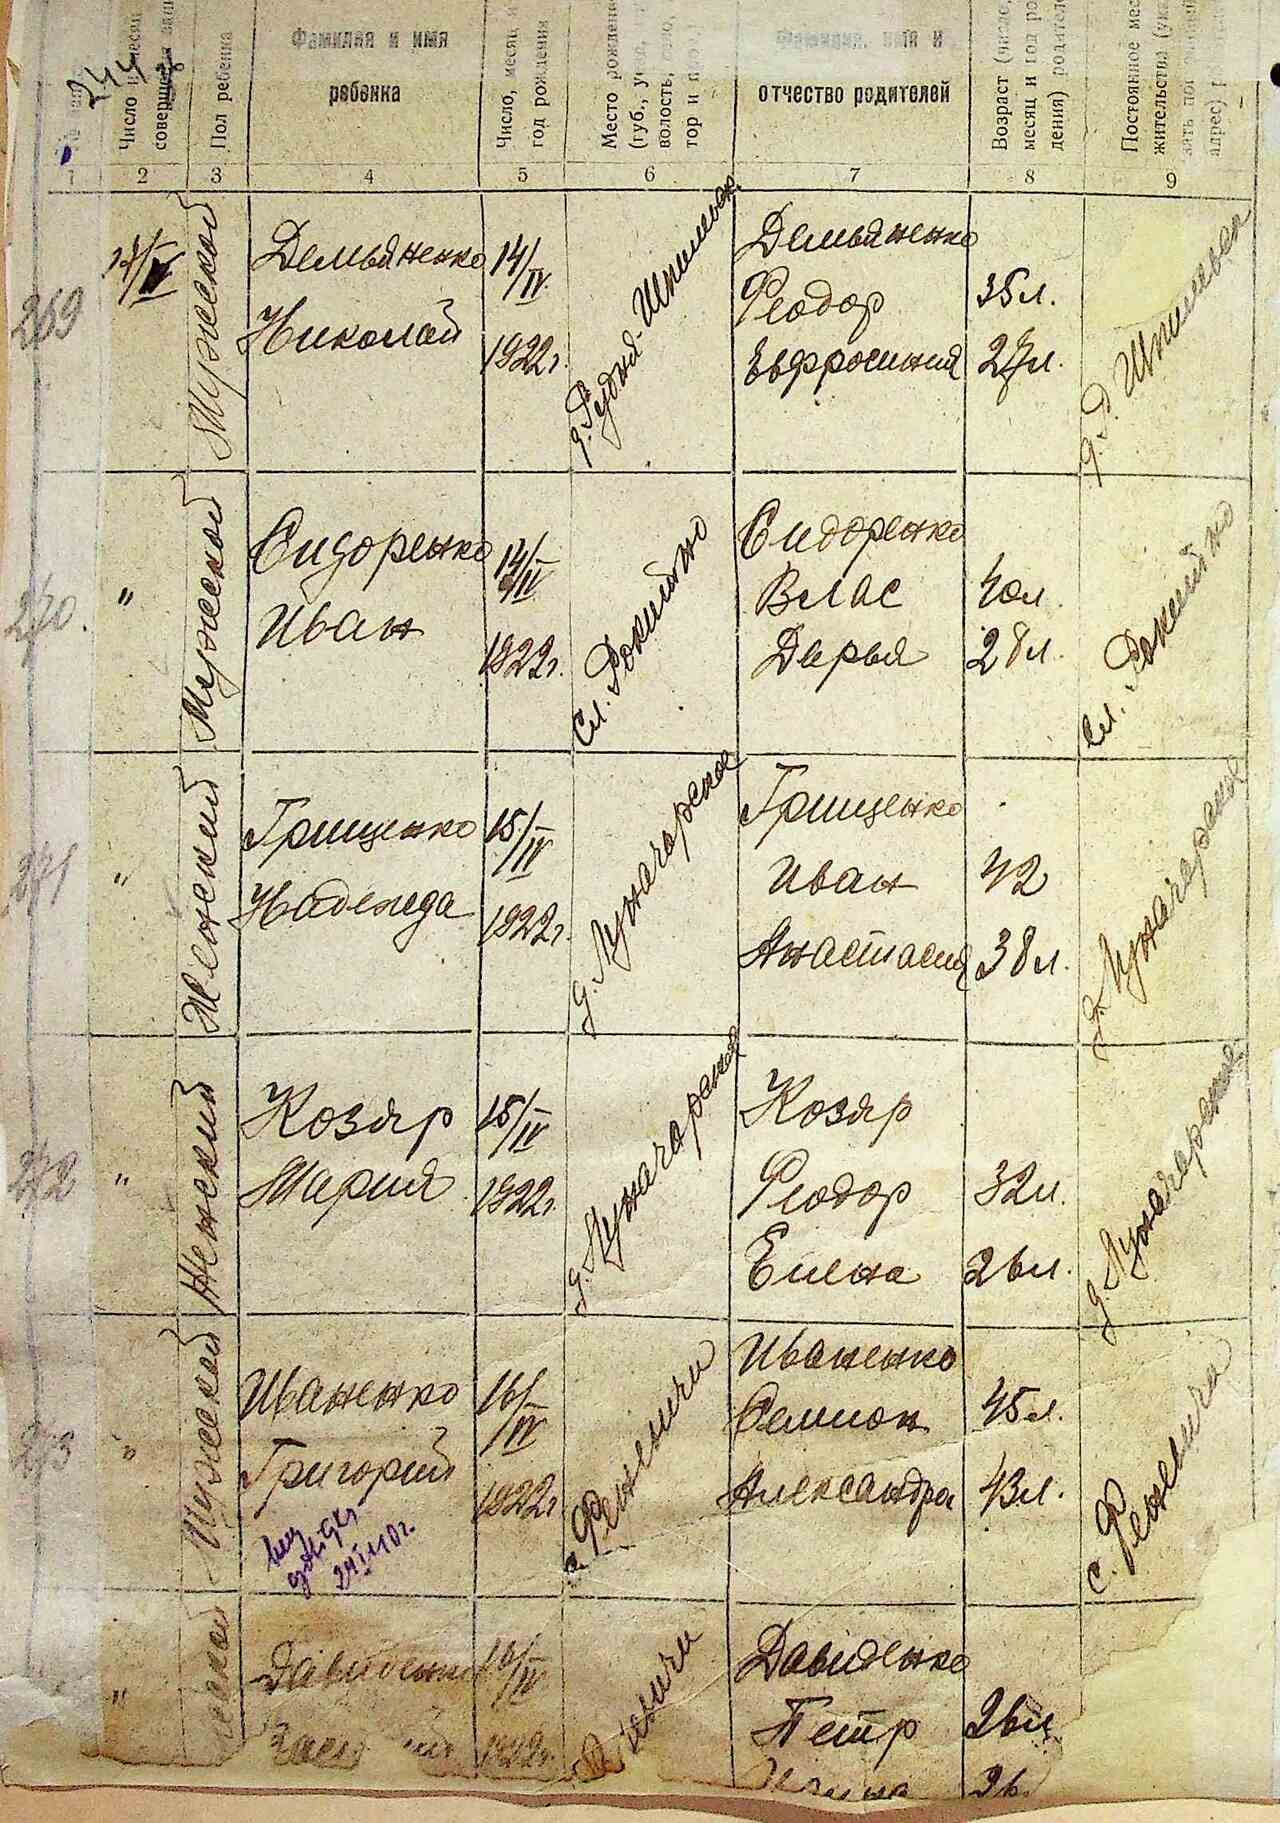 244
Число и месяц
совершения
Пол ребенка
Фамилия и имя
ребенка
Число, месяц и
год рождения
Место рождения
(губ., у
волость, село,
тор и
Фамилия, имя и
отчество родителей
Возраст (число,
месяц и год ро
дения) родителе
Постоянное мес
жительства (ука
зать по
адрес)
1 2 3 4 5 6 7 8 9
269
14/IV
Мужеской
Демьяненко
Николай
14/IV
1922г.
д. Рудня-Шпилевая
Демьяненко
Феодор 35л.
Евфросиния 27л.
д. Р. Шпилевая
270.
"
Мужеской
Сидоренко
Иван
14/IV
1922г.
Сл. Рокитно
Сидоренко
Влас 40л
Дарья 28л.
Сл. Рокитно
271
"
Женский
Грищенко
Надежда
15/IV
1922г.
д. Луначарское
Грищенко
Иван 42
Анастасия 38л.
д. Луначарское
272
"
Женский
Козяр
Мария
15/IV
1922г.
д. Луначарская
Козяр
Феодор 32л.
Елена 26л.
д. Луначарская
273
"
Мужеской
Иваненко
Григорий
16/IV
1922г.
с. Феневичи
Иваненко
Семион 45л.
Александра 43л.
с. Феневичи
"
еской
Давиденко
16/IV
1922г.
Давиденко
Петр 26л
26